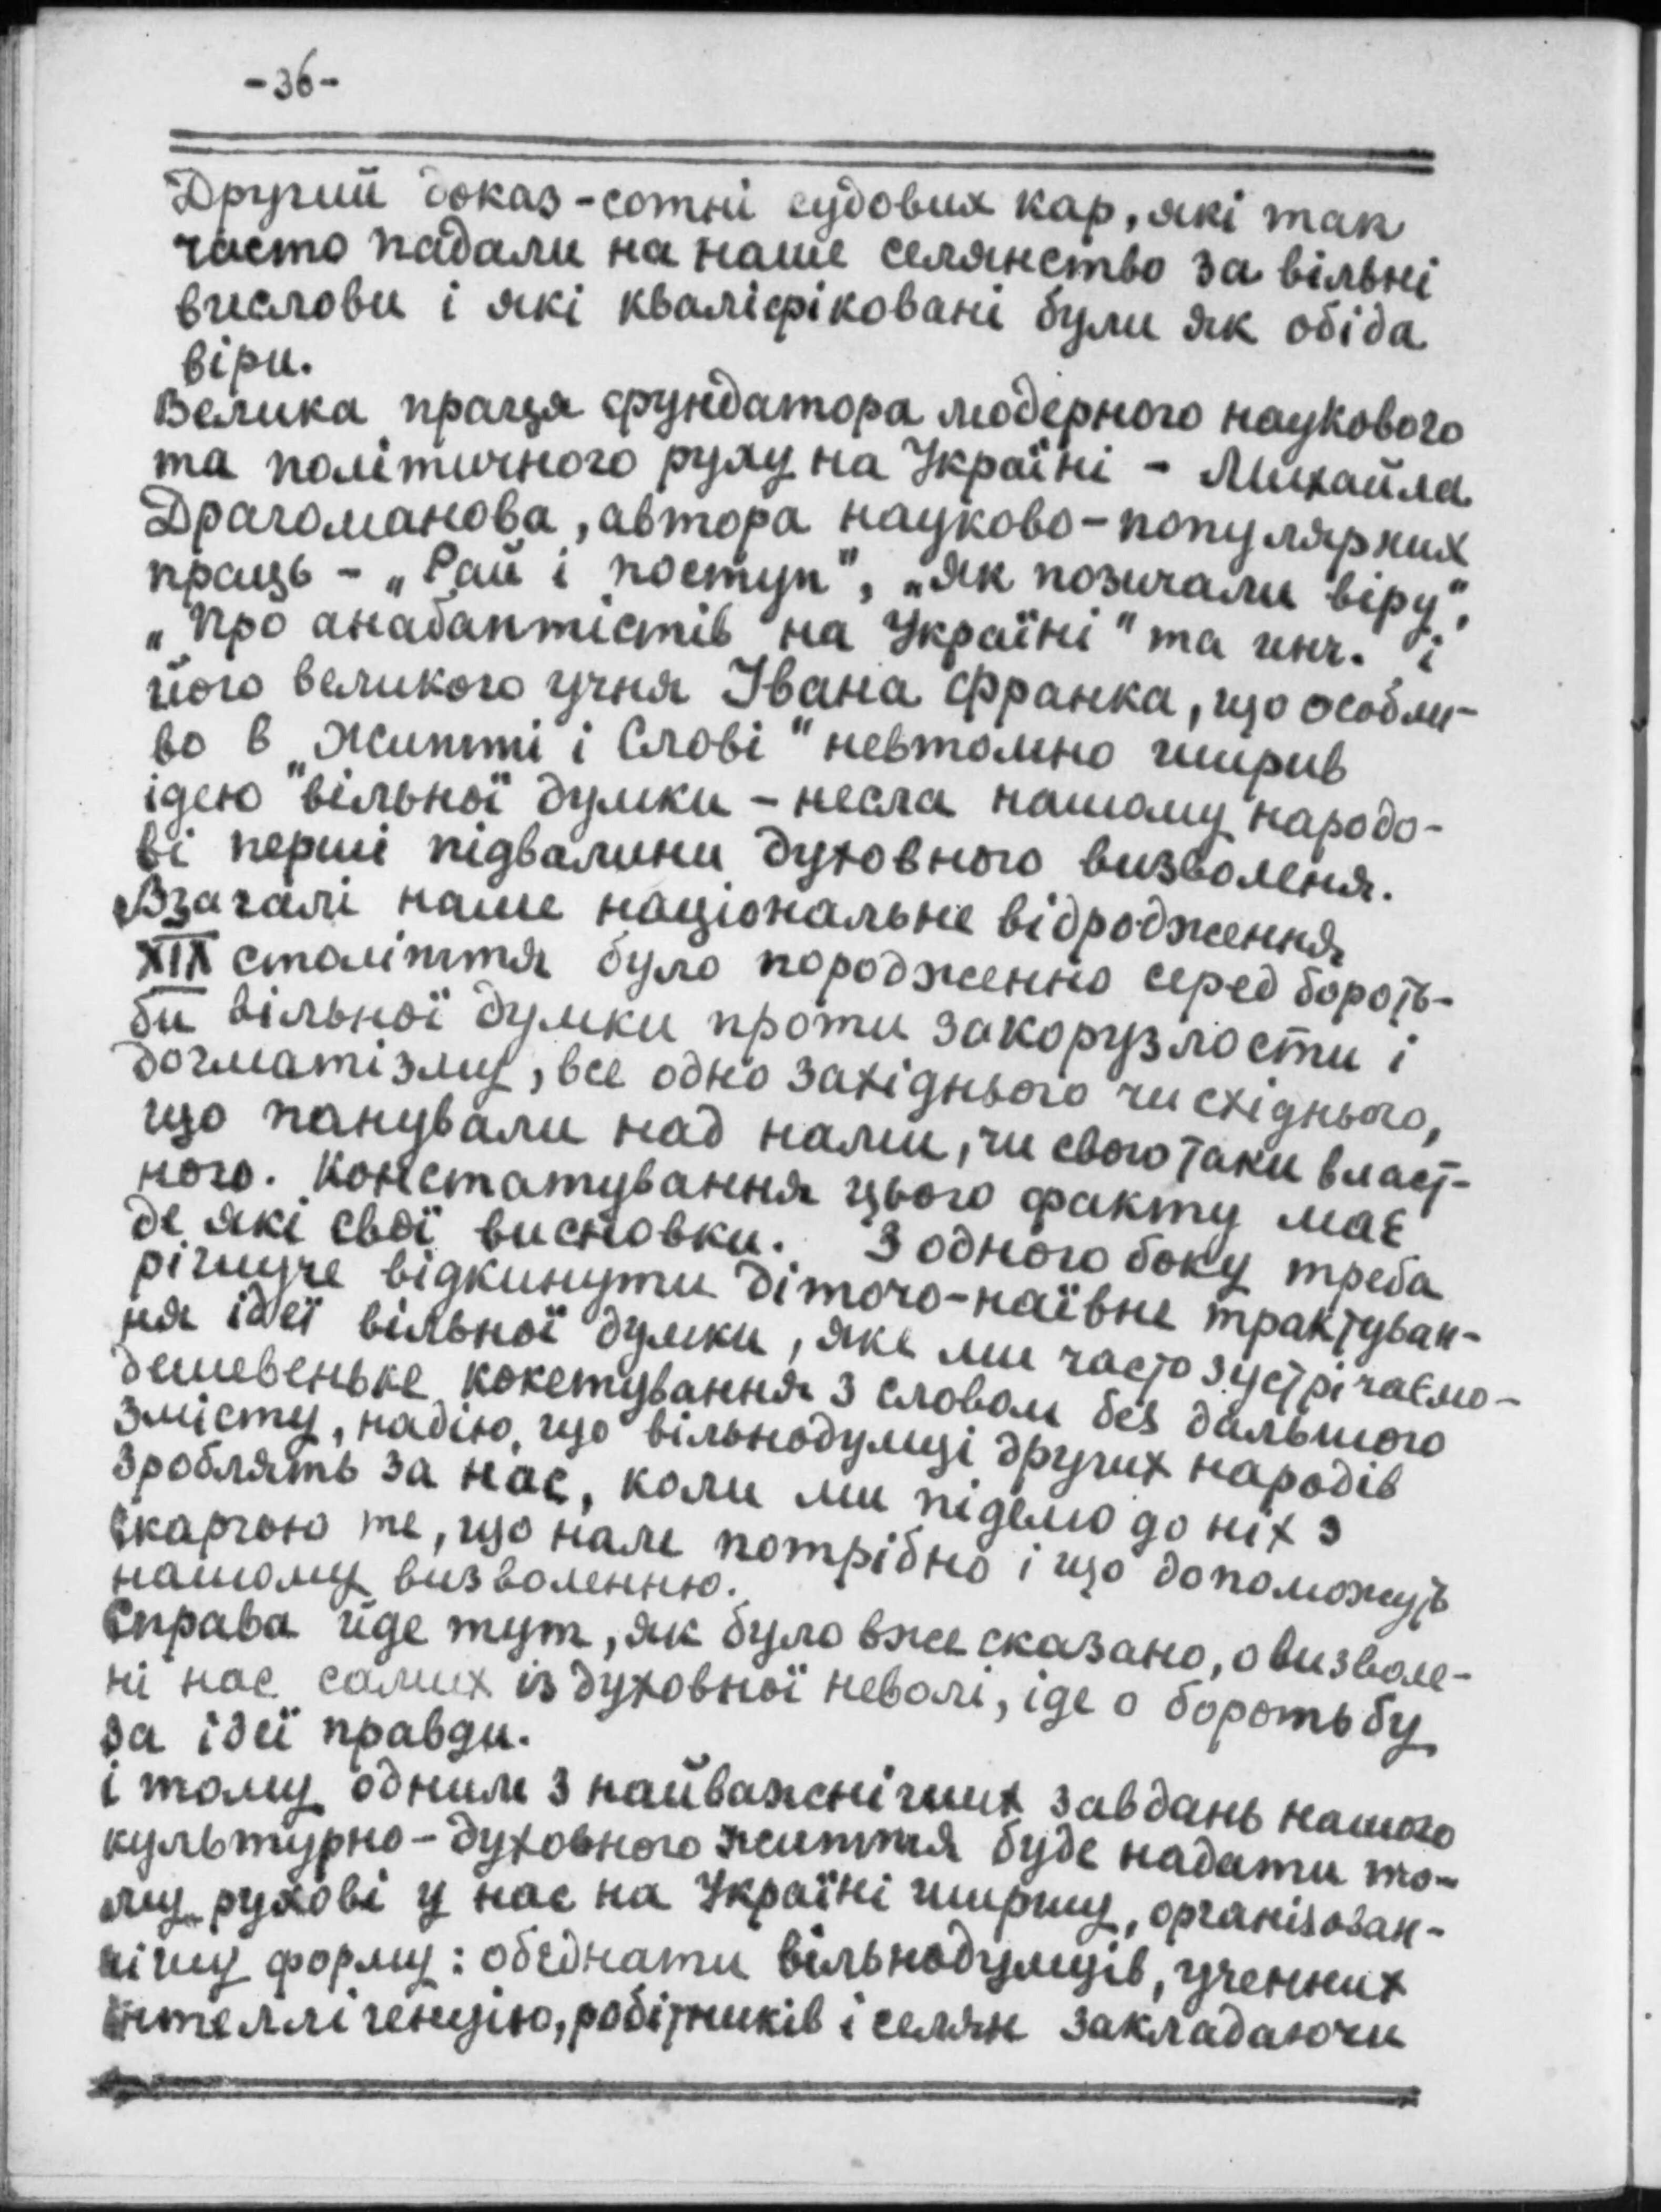 -36-
Другий доказ - сотні судових кар, які так
часто падали на наше селянство за вільні
вислови і які кваліфіковані були як обіда
віри.
Велика праця фундатора модерного наукового
та політичного руху на Україні - Михайла
Драгоманова, автора науково-популярних
праць - „Рай і поступ", „Як позичали віру",
„Про анабаптістів на Україні" та инч. і
його великого учня Івана Франка, що особли-
во в „Житті і Слові" невтомно ширив
ідею вільної думки - несла нашому народо-
ві перші підвалини духовного визволеня.
Взагалі наше національне відродження
XIX століття було породженно серед бороть-
би вільної думки проти закорузлости і
догматізму, все одно західнього чи східнього,
що панували над нами, чи свого таки власт-
ного. Констатування цього факту має
де які свої висновки. З одного боку треба
рішуче відкинути діточо-наївне трактуван-
ня ідеї вільної думки, яке ми часто зустрічаємо-
дешевеньке кокетування з словом без дальшого
змісту, надію, що вільнодумці других народів
зроблять за нас, коли ми підемо до ніх з
скаргою те, що нам потрібно і що допоможуть
нашому визволенню.
Справа йде тут, як було вже сказано, о визволе-
ні нас самих із духовної неволі, іде о боротьбу
за ідеї правди.
і тому одним з найважнійших завдань нашого
культурно-духовного життя буде надати то-
му рухові у нас на Україні ширшу, організован-
нішу форму: обєднати вільнодумців, учених
інтеллігенцію, робітників і селян закладаючи